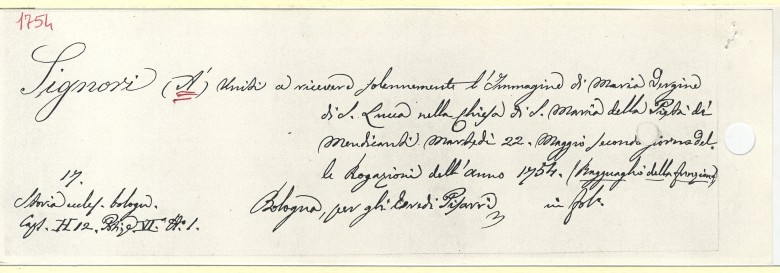 1754
Signori (A') Uniti a ricevere solennemente l'Immagine di Maria Vergine
di S. Luca nella Chiesa di S. Maria della Pietà di
Mendicanti Martedì 22. Maggio secondo giorno del-
le Rogazioni dell'anno 1754. (Ragguaglio della funzione)
Bologna, per gli Eredi Pisarri in fol.
17.
Storia eccles. bologn.
Caps. H 12. VI. N. 1.